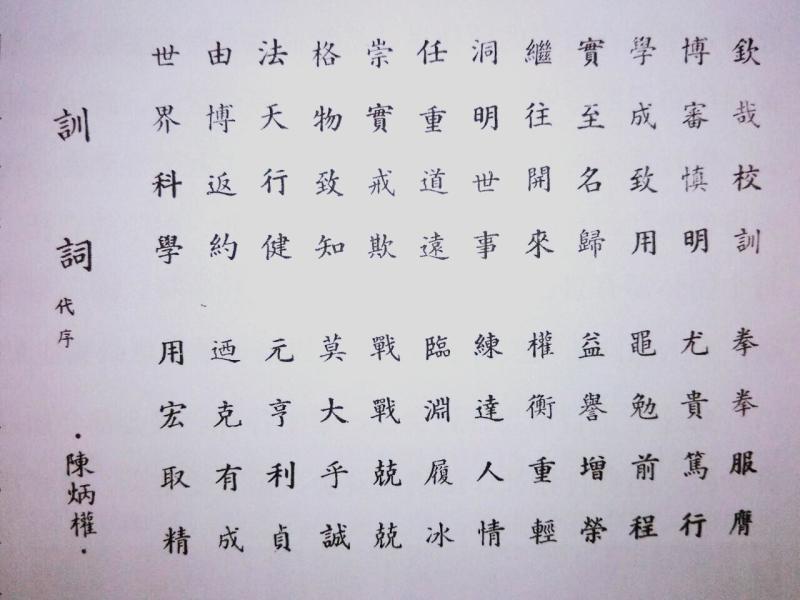 訓詞 代序
·陳炳權·
世界科學 用宏取精
由博返約 迺克有成
法天行健 元亨利貞
格物致知 莫大乎誠
崇實戒欺 戰戰兢兢
任重道遠 臨淵履冰
洞明世事 練達人情
繼往開來 權衡重輕
實至名歸 益譽增榮
學成致用 黽勉前程
博審慎明 尤貴篤行
欽哉校訓 拳拳服膺